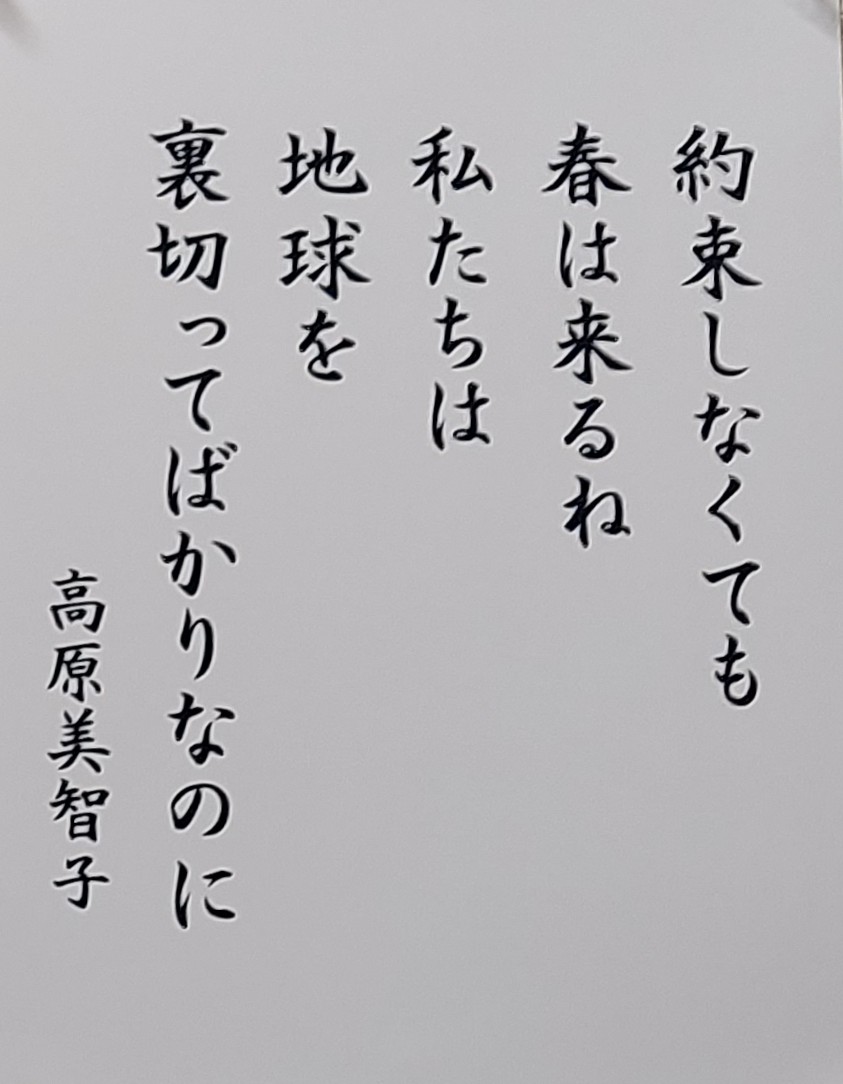 約束しなくても
春は来るね
私たちは
地球を
裏切ってばかりなのに
高原美智子